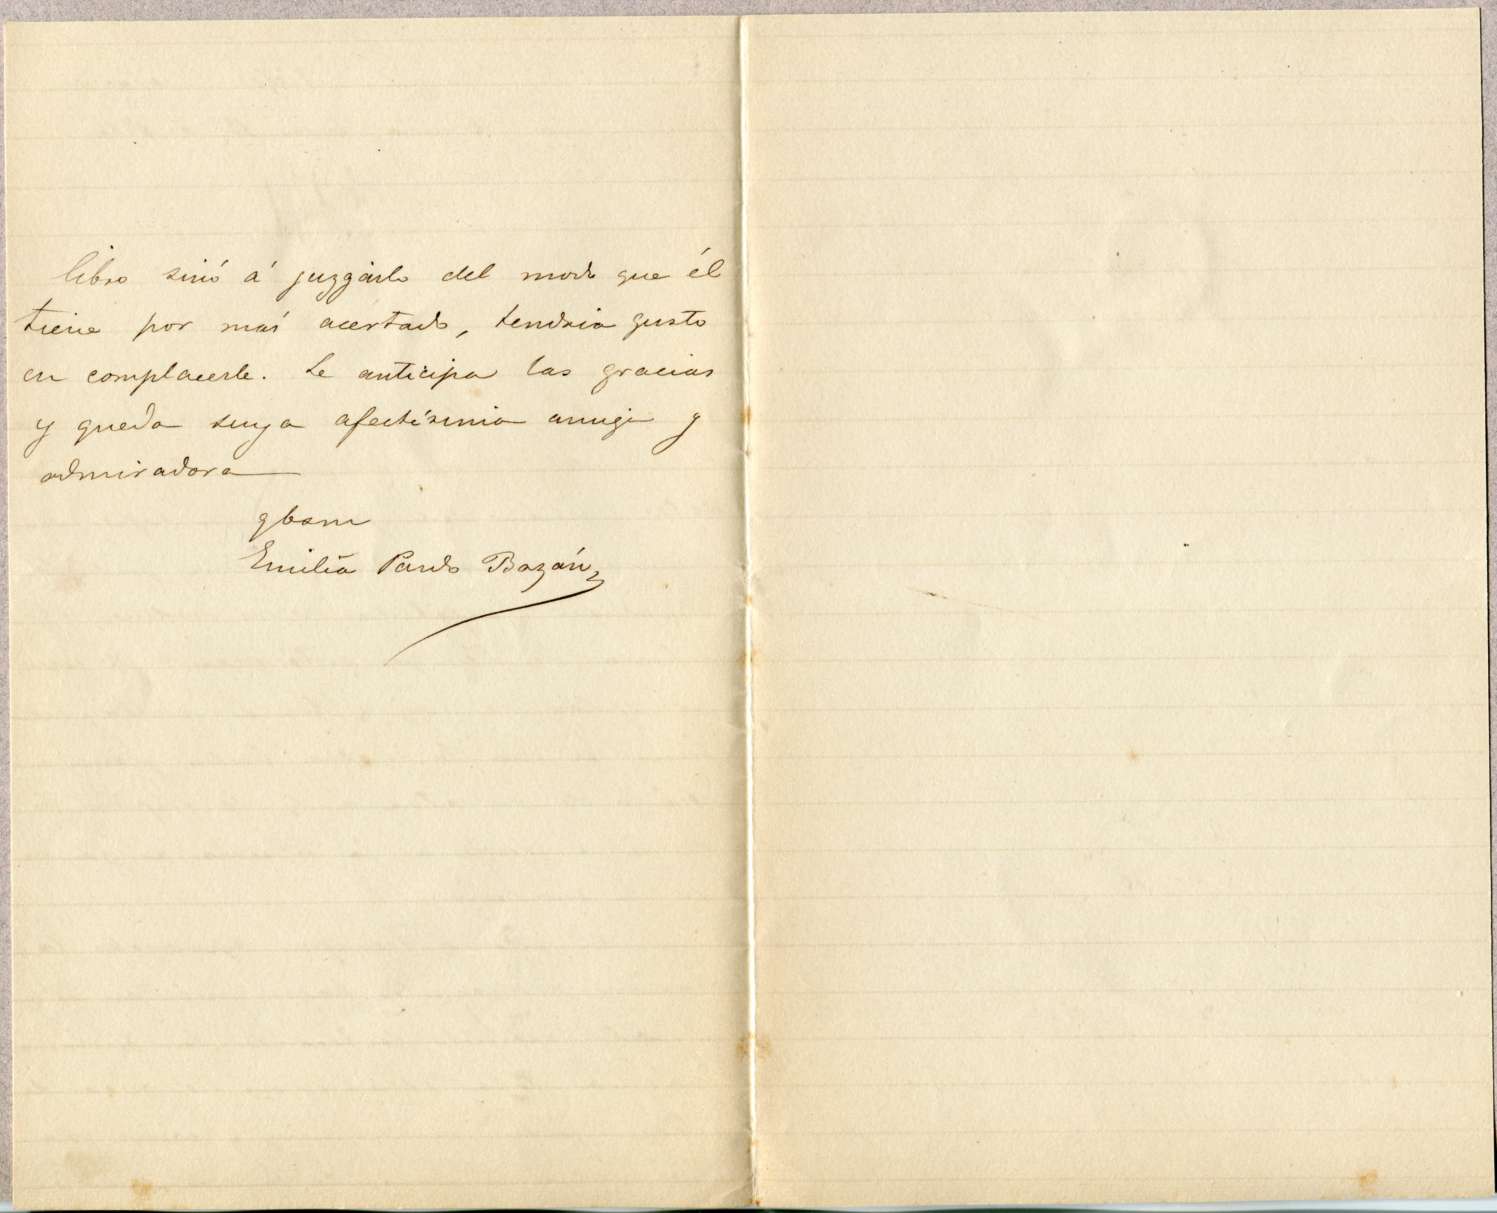 libro sinó á juzgarlo del modo que él
tiene por más acertado, tendria gusto
en complacerle. Le anticipa las gracias
y queda suya afectísima amiga y
admiradora
qbsm
Emilia Pardo Bazán